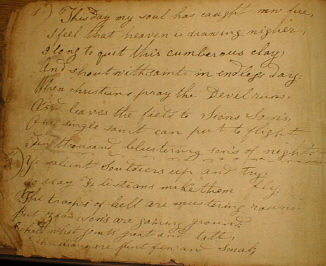 1) This day my soul has caught new fire,
I feel that heaven is drawing nigher,
I long to quit this cumberous clay,
And shout with saints in endless day.
When christians pray the Devel runs
And leaves the field to Sions Sons,
One single saint can put to flight
Ten thousand blustering sons of night
2) Ye valient Souldiers up and try
go day make them fly
The troops of hell are mustering round
But Zions works are gaining ground
what joints part and
are put few and Small